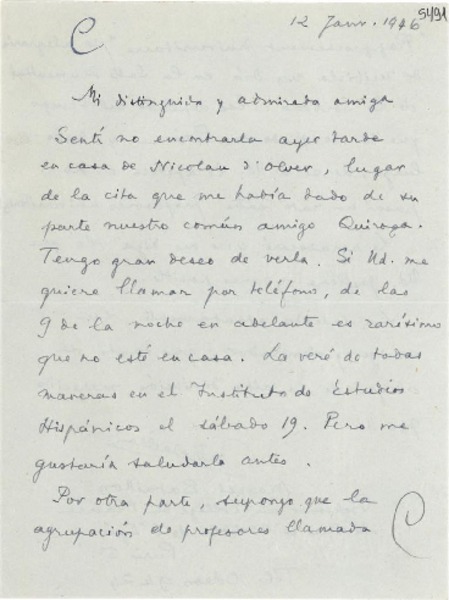 5491
12 Janv. 1946
C
Mi distinguida y admirada amiga
Sentí no encontrarla ayer tarde
en casa de Nicolau d'Olwer, lugar
de la cita que me había dado de su
parte nuestro común amigo Quiroga.
Tengo gran deseo de verla. Si Ud. me
quiere llamar por teléfono, de las
9 de la noche en adelante es rarísimo
que no esté en casa. La veré de todas
maneras en el Instituto de Estudios
Hispánicos el sábado 19. Pero me
gustaría saludarla antes.
Por otra parte, supongo que la
agrupación de profesores llamada
C